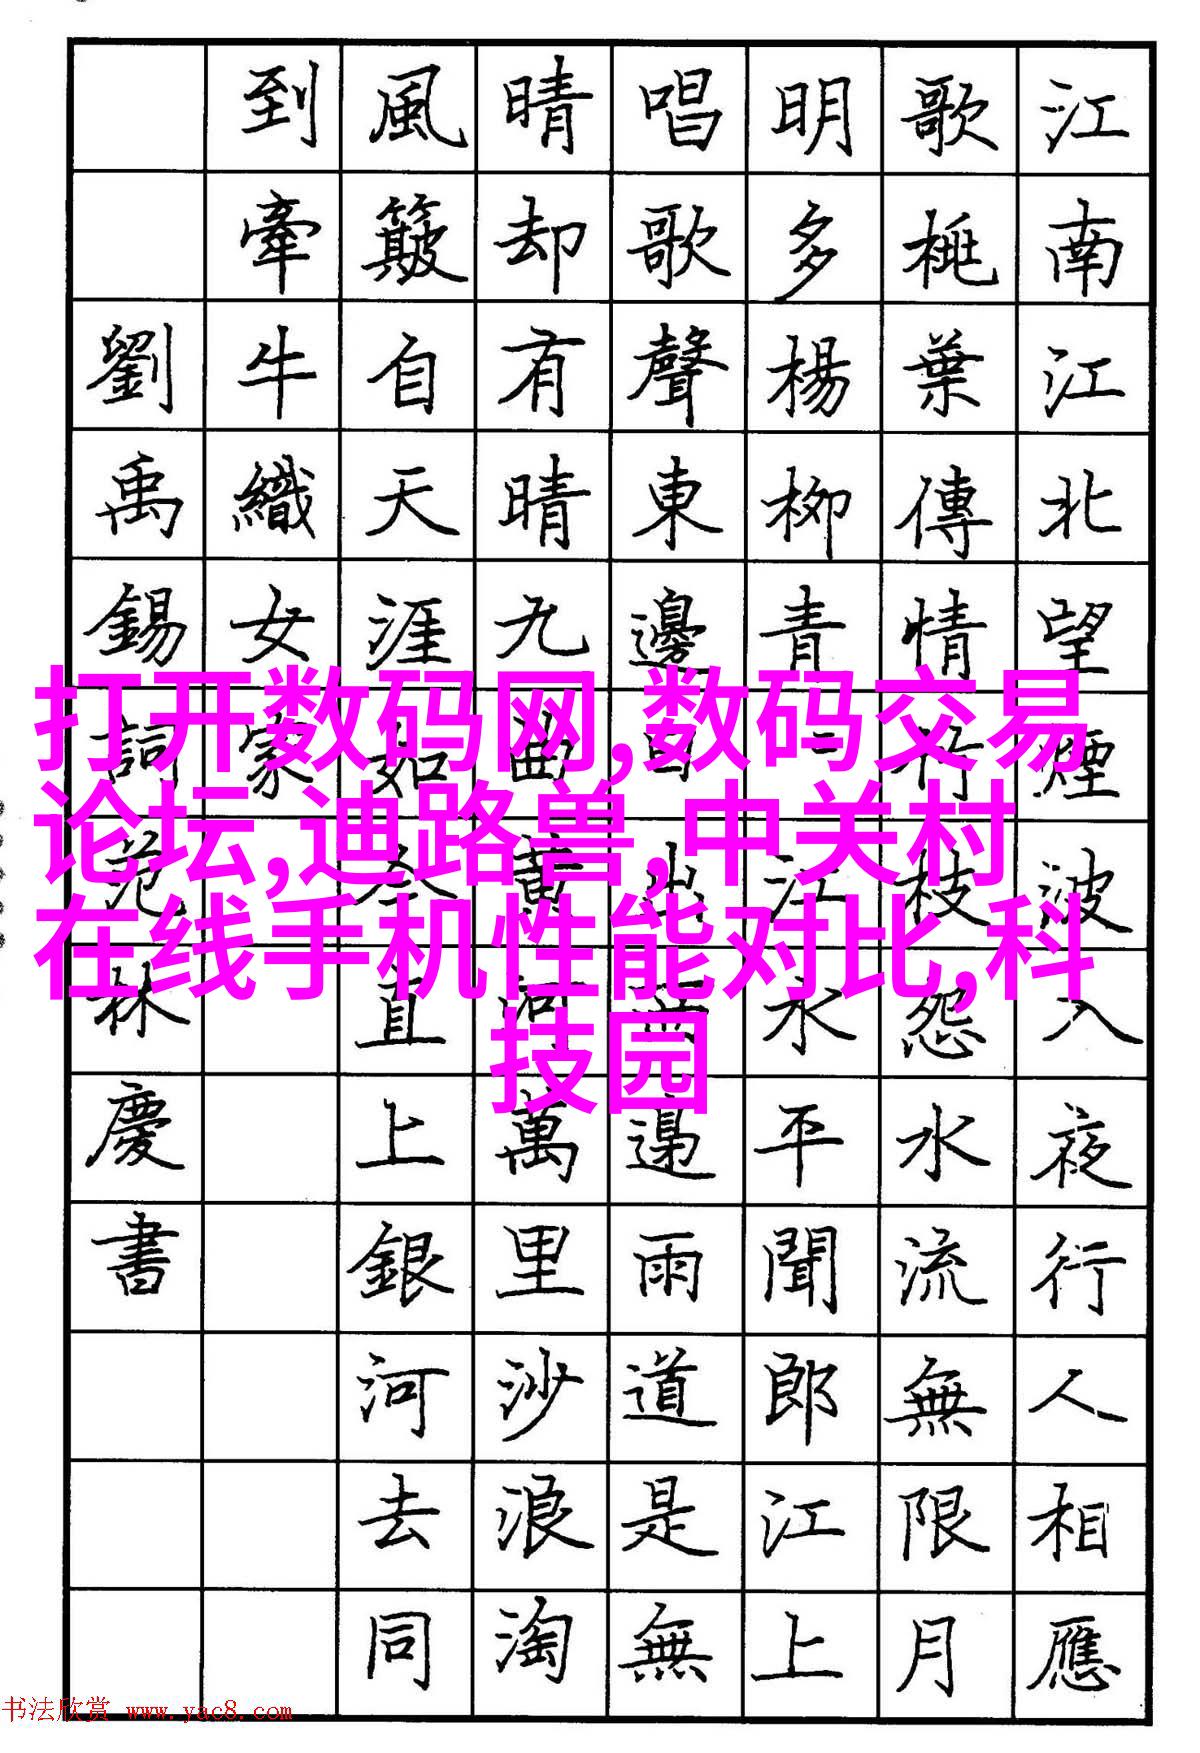 江南江北望煙波入夜行人相應
歌桃葉傳情竹枝怨水流無限月
明多楊柳青江水平聞郎江上
唱歌聲東邊日出西邊雨道是無
晴却有晴九曲黃河萬里沙浪淘
風簸自天涯如今直上銀河去同
到牽牛織女家
劉禹錫詞范林慶書
打开数码网,数码交易
论坛,迪路兽,中关村
在线手机性能对比,科
技园
书法欣赏 www.yac8.com